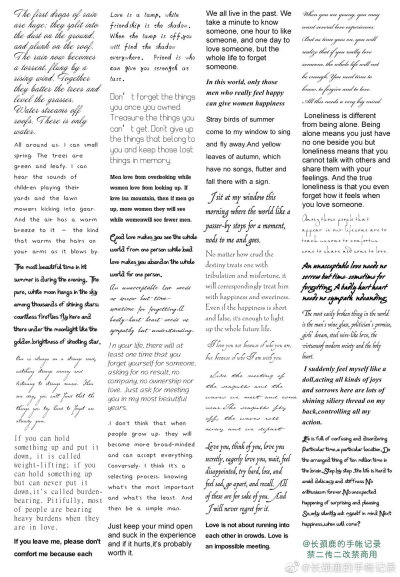 The first drops of rain
are huge; they split into
the dust on the ground,
and plunk on the roof.
The rain now becomes
a torrent, flung by a
rising wind. Together
they batter the trees and
level the grasses.
Water streams off
roofs. There is only
water.
All around us. I can smell
spring. The trees are
green and leafy. I can
hear the sounds of
children playing their
yards and the lawn
mowers kicking into gear.
And the air has a warm
breeze to it – the kind
that warms the hairs on
your arms as it blows by.
The most beautiful time in hit
summer is during the evening. The
pure, white moon hangs in the sky
among thousands of shining stars;
countless fireflies fly here and
there under the moonlight like the
golden,brightness of shooting star,
If you can hold
something up and put it
down, it is called
weight-lifting; if you
can hold something up
but can never put it
down,it's called burden-
bearing. Pitifully, most
of people are bearing
heavy burdens when they
are in love.
If you leave me, please don't
comfort me because each
Love is a lamp, while
friendship is the shadow.
When the lamp is off,you
will find the shadow
everywhere. Friend is who
can give you strength at
last.
Don't forget the things
you once owned.
Treasure the things you
can't get. Don't give up
the things that belong to
you and keep those lost
things in memory.
Men love from overlooking while
women love from looking up. If
love is a mountain, then if men go
up, more women they will see
while womenwill see fewer men.
Good love makes you see the whole
world from one person while bad
love makes you abandon the whole
world for one person,
An unacceptable love needs
no sorrow but time-
sometime for forgetting.A
badly-hurt heart needs no
sympathy but understanding.
In your life, there will at
least one time that you
forget yourself for someone,
asking for no result, no
company, no ownership nor
love. Just ask for meeting
you in my most beautiful
years.
I don't think that when
people grow up, they will
become more broad-minded
and can accept everything.
Conversely, I think it's a
selecting process, knowing
what's the most important
and what's the least. And
then be a simple man.
Just keep your mind open
and suck in the experience
and if it hurts,it's probably
worth it.
We all live in the past. We
take a minute to know
someone, one hour to like
someone, and one day to
love someone, but the
whole life to forget
someone.
In this world, only those
men who really feel happy
can give women happiness
Stray birds of summer
come to my window to sing
and fly away.And yellow
leaves of autumn, which
have no songs, flutter and
fall there with a sign.
I sit at my window this
morning where the world like a
passer-by stops for a moment,
nods to me and goes.
No matter how cruel the
destiny treats one with
tribulation and misfortune, it
will correspondingly treat him
with happiness and sweetness.
Even if the happiness is short
and false, it's enough to light
up the whole future life.
I love you not because of who you are,
but because of who I am with you.
Love you, think of you, love you
secretly, eagerly love you, wait, feel
disappointed, try hard, lose, and
feel sad, go apart, and recall. All
of these are for sake of you. And
I will never regret for it.
Love is not about running into
each other in crowds. Love is
an impossible meeting.
When you are young, you may
want several love experiences.
But as time goes on, you will
realize that if you really love
someone, the whole life will not
be enough. You need time to
know, to forgive and to love.
All this needs a very big mind.
Loneliness is different
from being alone. Being
alone means you just have
no one beside you but
loneliness means that you
cannot talk with others and
share them with your
feelings. And the true
loneliness is that you even
forget how it feels when
you love someone.
An unacceptable love needs no
sorrow but time- sometime for
forgetting. A badly-hurt heart
needs no sympathy
The most easily broken thing in the world
is the
heart.
I suddenly feel myself like a
doll,acting all kinds of joys
and sorrows here are lots of
shining siliery thread on my
back,controlling all my
action.
Life is full of confusing and disordering
Particular time,a particular location, Do
the arranged thing of ten million time in
the brain ,Step by step ,the life is hard to
avoid delicacy and stiffness No
enthusiasm forever No unexpected
happening of surprising and pleasing
So,only silently ask myself in mind Next
happiness,when will come?
@长颈鹿的手帐记录
禁二传二改禁商用
@长颈鹿的手帐记录